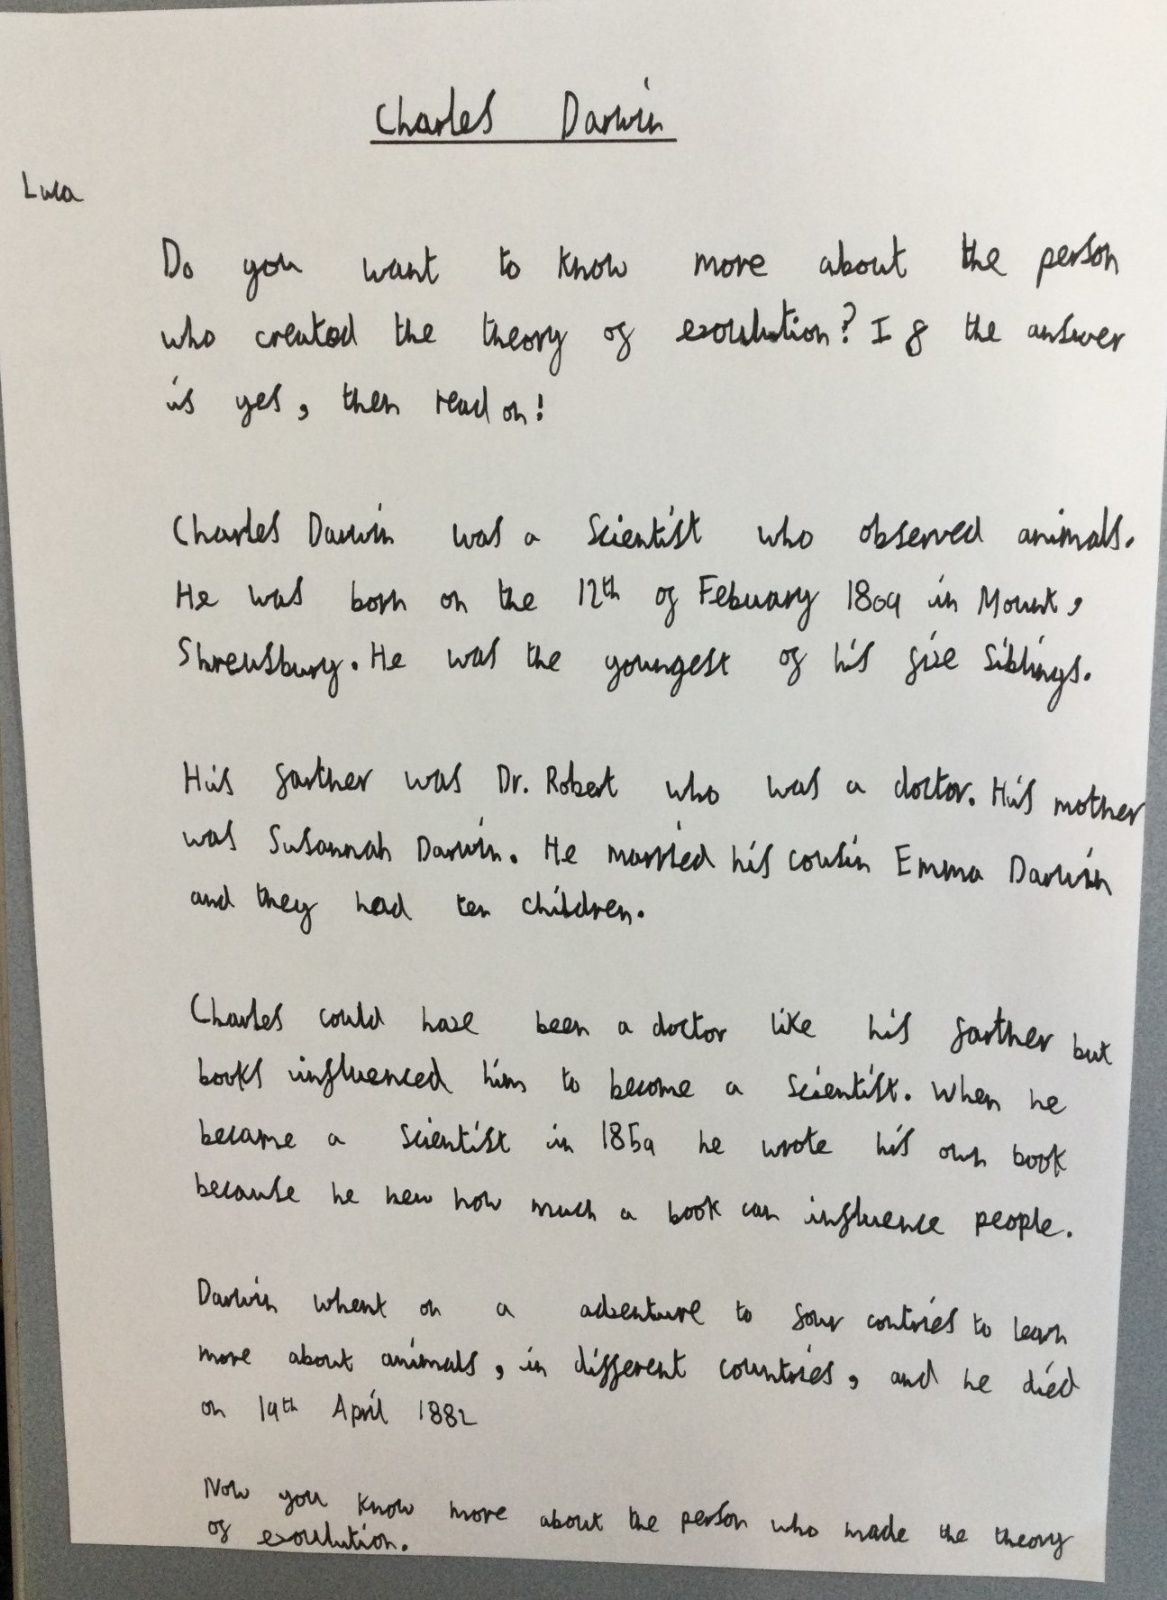 Charles Darwin
Luca
Do you want to know more about the person
who created the theory of evoulution? If the answer
is yes, then read on!
Charles Darwin was a Scientist who observed animals.
He was born on the 12th of Febuary 1809 in Mount,
Shrewsbury. He was the youngest of his five Siblings.
His farther was Dr. Robert who was a doctor. His mother
was Susannah Darwin. He married his cousin Emma Darwin
and they had ten children.
Charles could have been a doctor like his farther but
books influenced him to become a scientist. When he
became a scientist in 1859 he wrote his own book
because he new how much a book can influence people.
Darwin whent on a adventure to four contries to learn
more about animals, in different countries, and he died
on 19th April 1882
Now you know more about the person who made the theory
of evoulution.